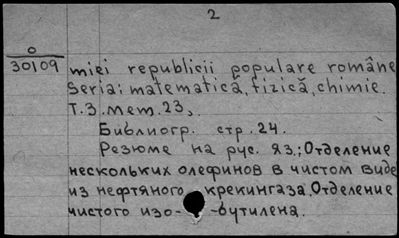 2
0
30109 miei republicii populare române
Seria: matematică, fizică, chimie.
T.3. Mem. 23,.
Библиогр. стр. 24.
Резюме на рус. яз.; Отделение
нескольких олефинов в чистом виде
из нефтяного крекингаза. Отделение
чистого изо-бутилена.